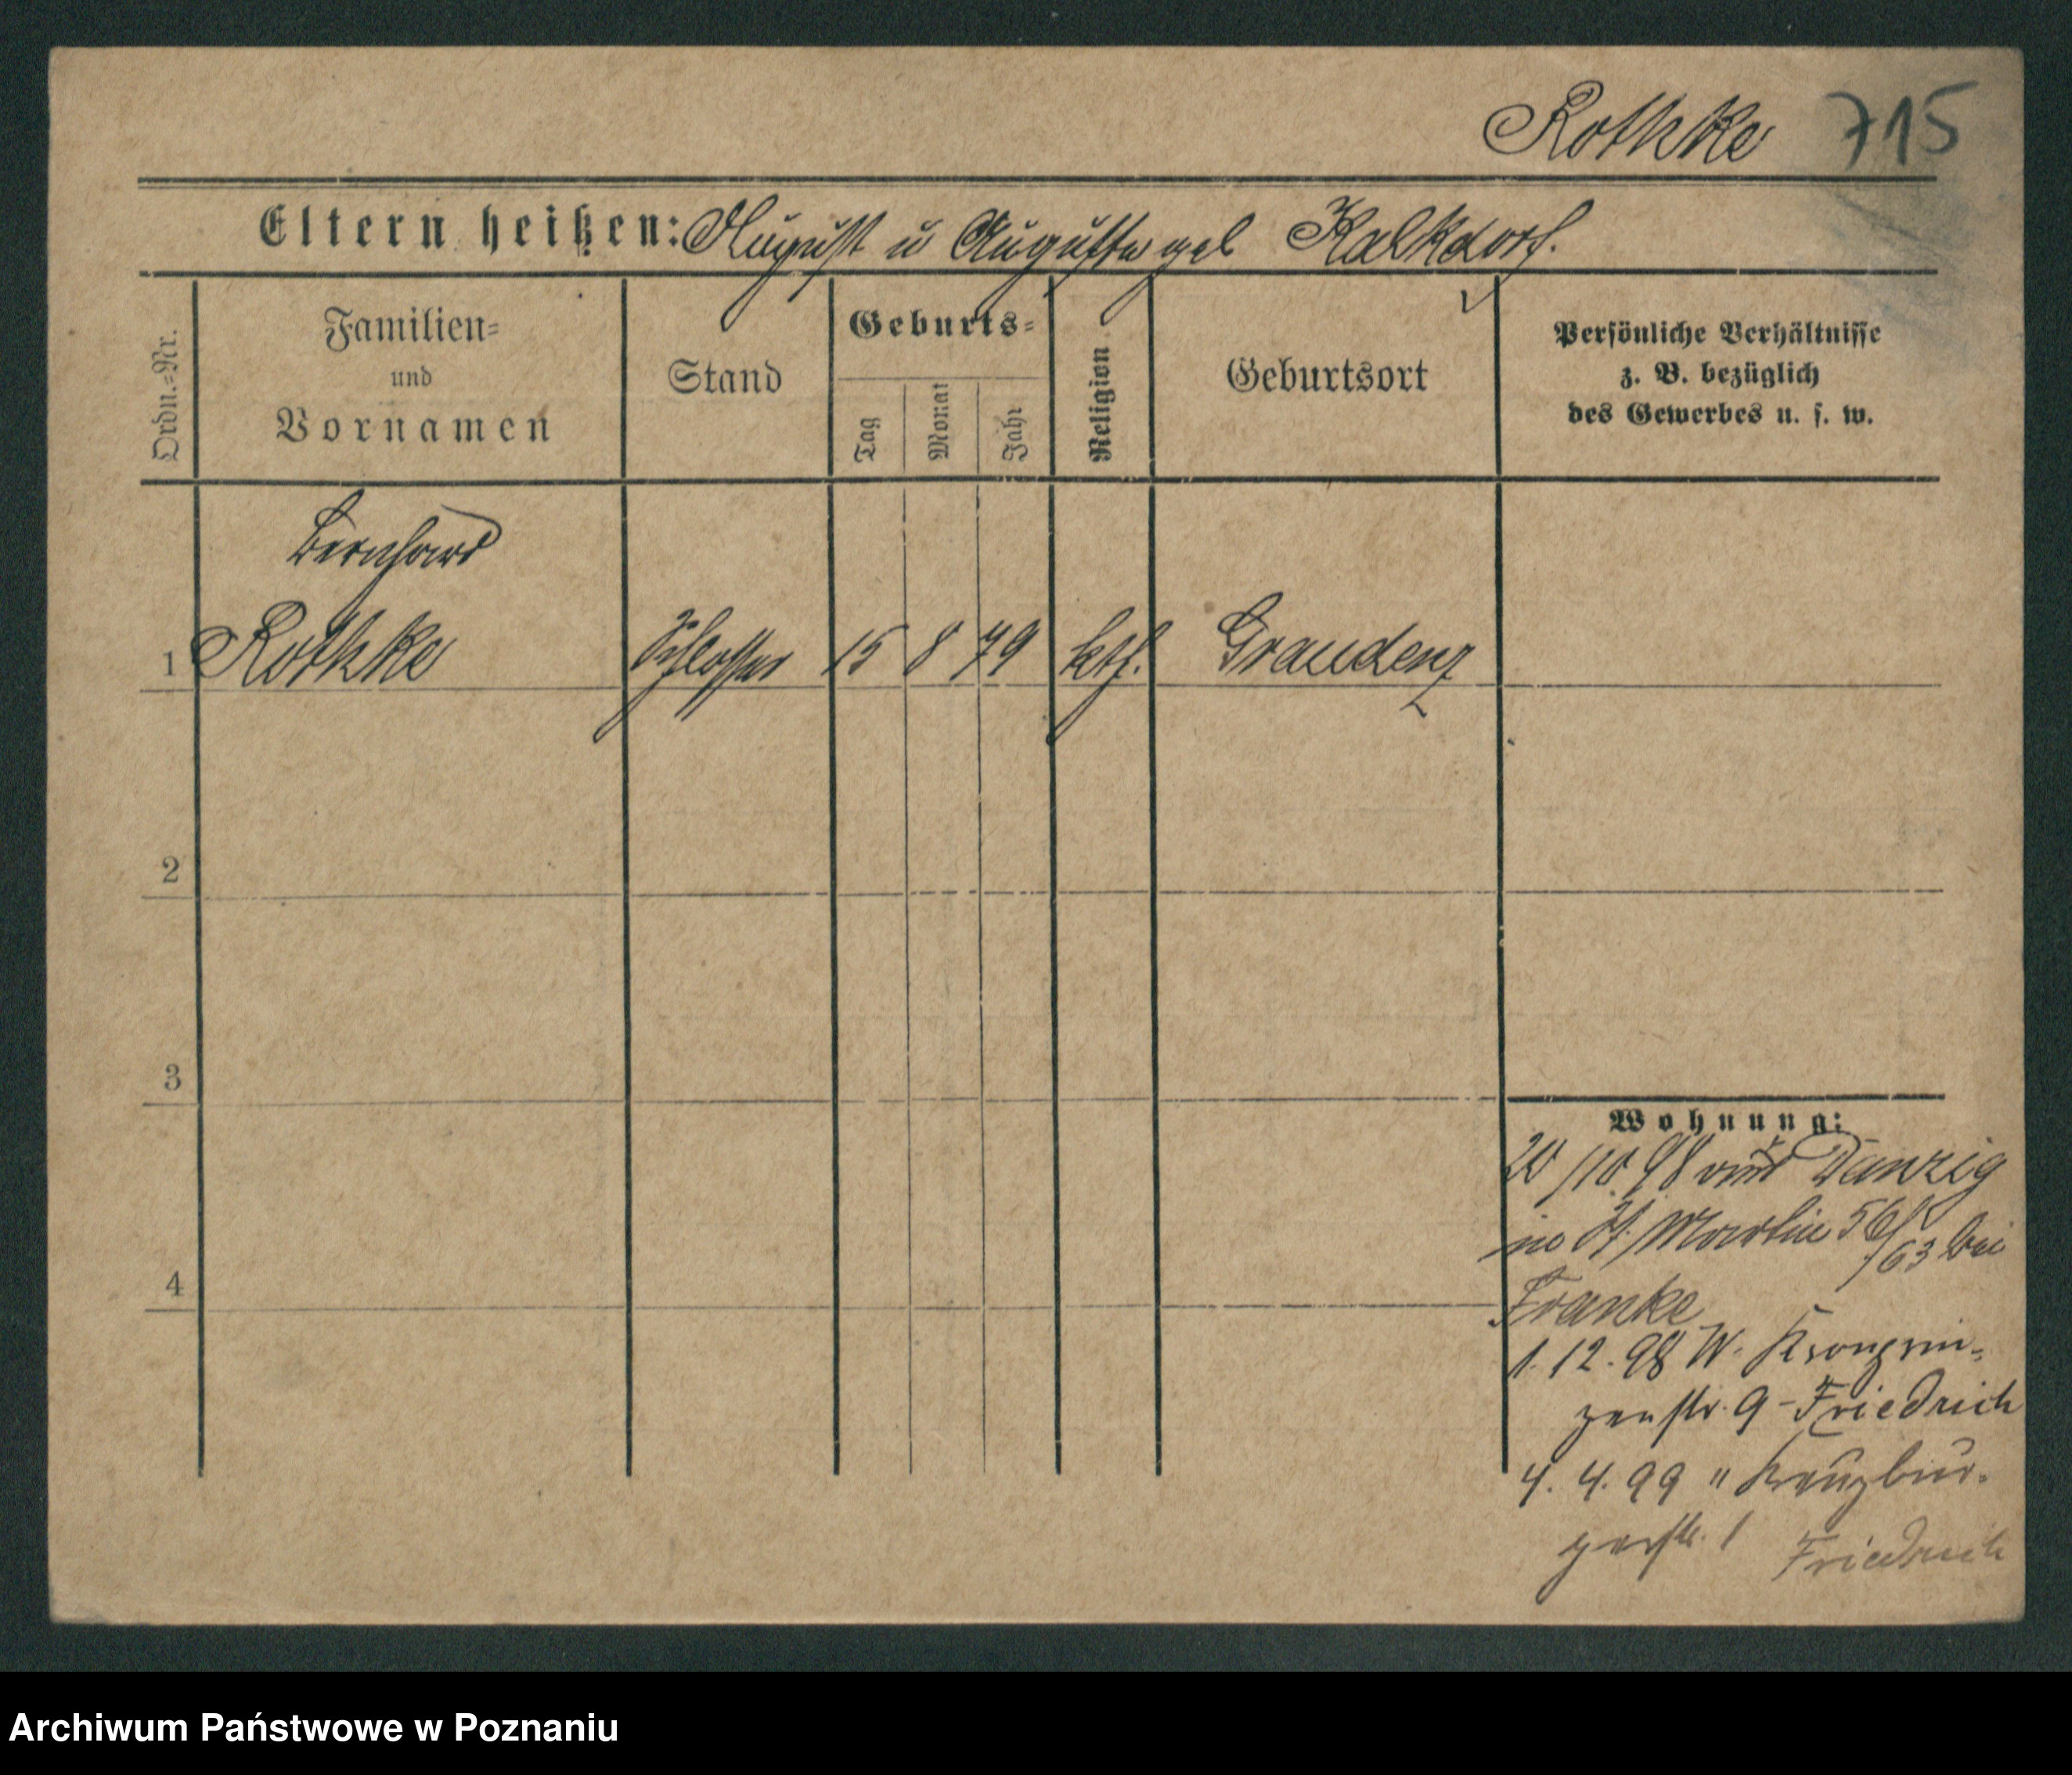 Rothke 715
Eltern heißen: August u Auguste geb Kalkdorf.
Ordn.=Nr.
Familien=
und
Vornamen
Stand
Geburts=
Tag
Monat
Jahr
Religion
Geburtsort
Persönliche Verhältnisse
z. B. bezüglich
des Gewerbes u. s. w.
Bernhard
1 Rothke Schlosser 15 8 79 kth. Graudenz
2
3
4
Wohnung:
20/10 98 aus Danzig
St. Martin 56/63 bei
Franke
1. 12. 98 W. Kronprin=
zenstr. 9 - Friedrich
4. 4. 99 " Kreuzbur=
gerstr. 1 Friedrich
Archiwum Państwowe w Poznaniu